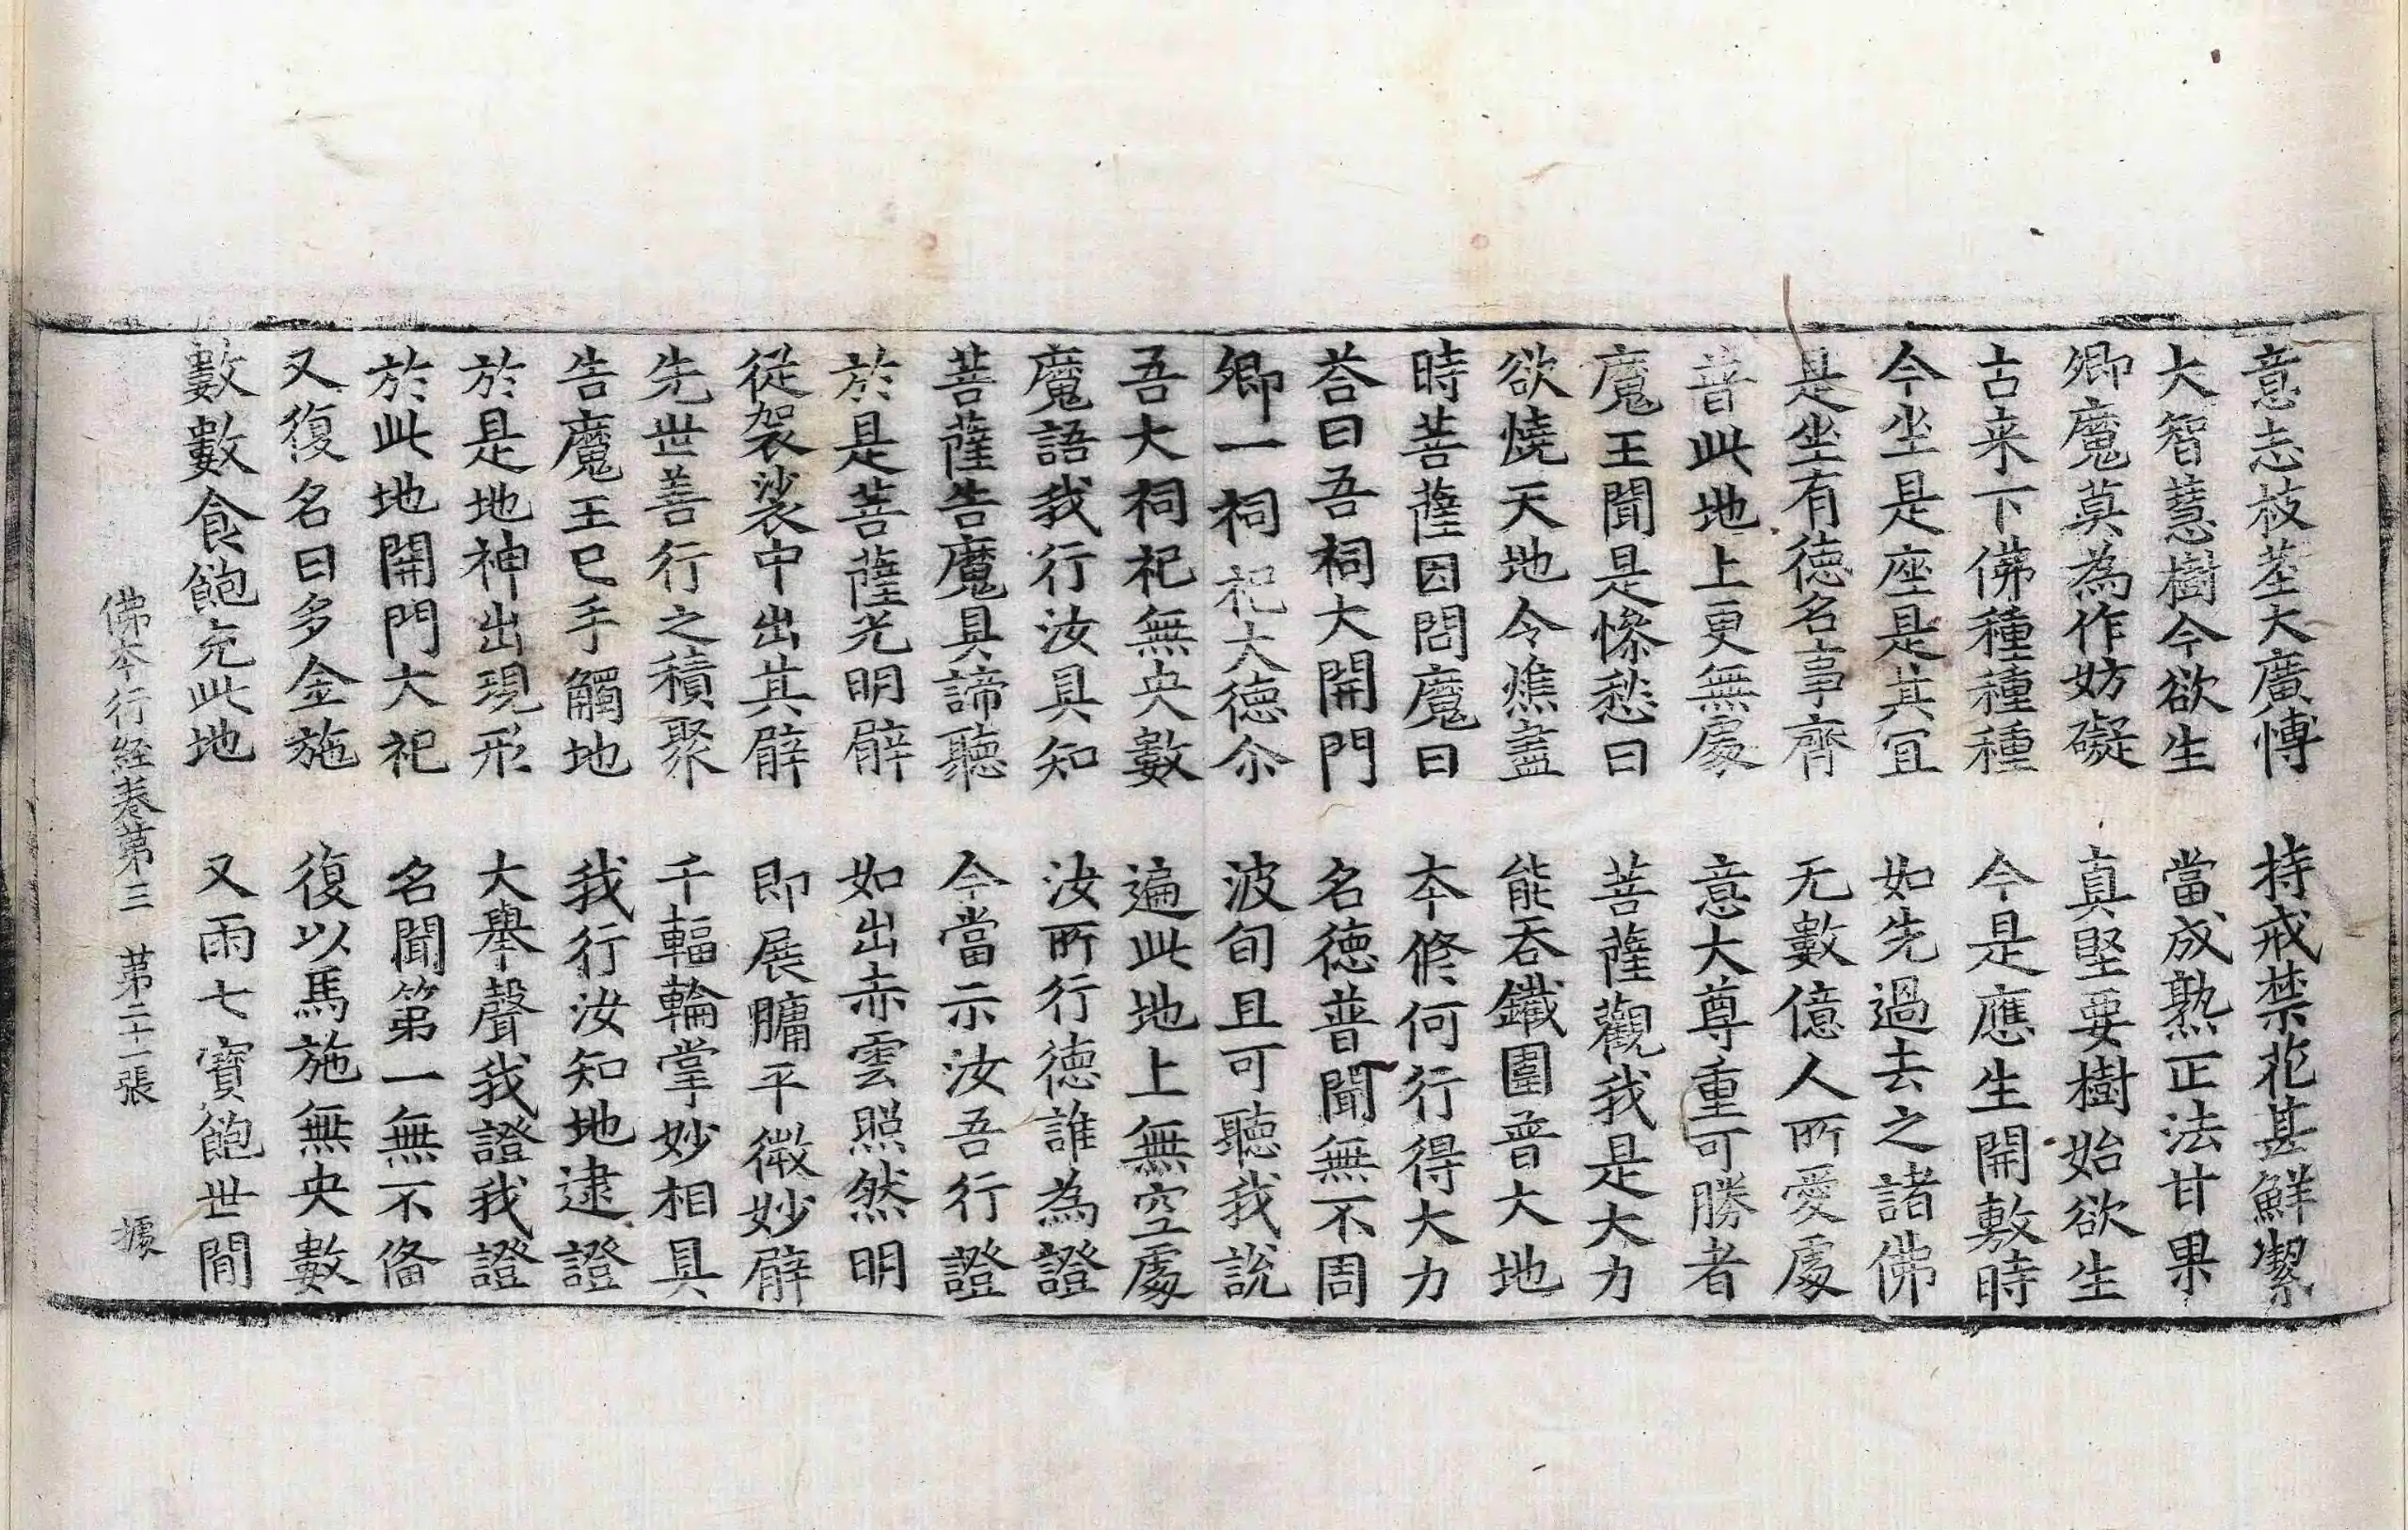 意志枝莖大廣愽　持戒禁花甚鮮潔
大智慧樹今欲生　當成熟正法甘果
卿魔莫為作妨礙　真堅要樹始欲生
古来下佛種種種　今是應生開敷時
今坐是座是其冝　如先過去之諸佛
是坐有德名事齊　无數億人所愛處
普此地上更無處　意大尊重可勝者
魔王聞是慘愁曰　菩薩觀我是大力
欲燒天地令燋盡　能吞鐵圍普大地
時菩薩因問魔曰　本修何行得大力
荅曰吾祠大開門　名德普聞無不周
卿一祠祀大德尒　波旬且可聽我說
吾大祠祀無央數　遍此地上無空處
魔語我行汝具知　汝所行德誰為證
菩薩告魔具諦聽　今當示汝吾行證
於是菩薩光明臂　如出赤雲照然明
從袈裟中出其臂　即展𦟛平微妙臂
先世善行之積聚　千輻輪掌妙相具
告魔王已手觸地　我行汝知地逮證
於是地神出現形　大舉聲我證我證
於此地開門大祀　名聞第一無不俻
又復名曰多金施　復以馬施無央數
數數食飽充此地　又雨七寶飽世間
佛本行經卷第三　第二十一張　據